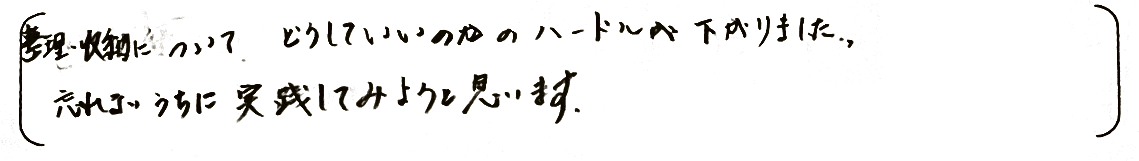 整理・収納について どうしていいのかのハードルが下がりました。
忘れないうちに実践してみようと思います。